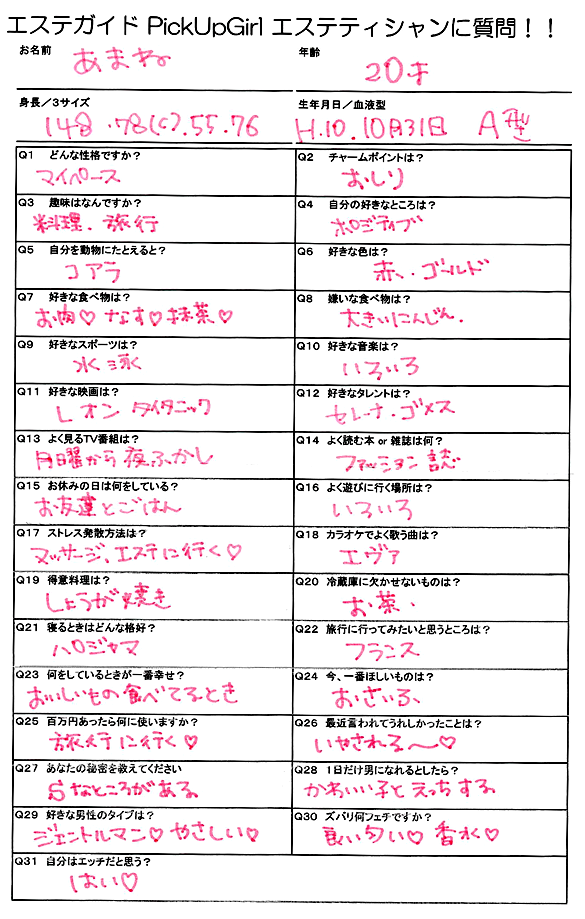 エステガイド PickUpGirl エステティシャンに質問！！
お名前
あまね
年齢
20才
身長／3サイズ
148・78(C).55.76
生年月日／血液型
H.10.10月31日 A型
Q1 どんな性格ですか？
マイペース
Q2 チャームポイントは？
おしり
Q3 趣味はなんですか？
料理、旅行
Q4 自分の好きなところは？
ポジティブ
Q5 自分を動物にたとえると？
コアラ
Q6 好きな色は？
赤、ゴールド
Q7 好きな食べ物は？
お肉♡ なす♡ 抹茶♡
Q8 嫌いな食べ物は？
大きいにんじん.
Q9 好きなスポーツは？
水泳
Q10 好きな音楽は？
いろいろ
Q11 好きな映画は？
レオン タイタニック
Q12 好きなタレントは？
セレーナ・ゴメス
Q13 よく見るTV番組は？
月曜から夜ふかし
Q14 よく読む本 or 雑誌は何？
ファッション誌
Q15 お休みの日は何をしている？
お友達とごはん
Q16 よく遊びに行く場所は？
いろいろ
Q17 ストレス発散方法は？
マッサージ、エステに行く♡
Q18 カラオケでよく歌う曲は？
エヴァ
Q19 得意料理は？
しょうが焼き
Q20 冷蔵庫に欠かせないものは？
お茶、
Q21 寝るときはどんな格好？
パジャマ
Q22 旅行に行ってみたいと思うところは？
フランス
Q23 何をしているときが一番幸せ？
おいしいもの食べてるとき
Q24 今、一番ほしいものは？
おさいふ、
Q25 百万円あったら何に使いますか？
旅行に行く♡
Q26 最近言われてうれしかったことは？
いやされる〜♡
Q27 あなたの秘密を教えてください
Sなところがある。
Q28 1日だけ男になれるとしたら？
かわいい子とえっちする。
Q29 好きな男性のタイプは？
ジェントルマン♡ やさしい♡
Q30 ズバリ何フェチですか？
良い匂い♡ 香水♡
Q31 自分はエッチだと思う？
はい♡